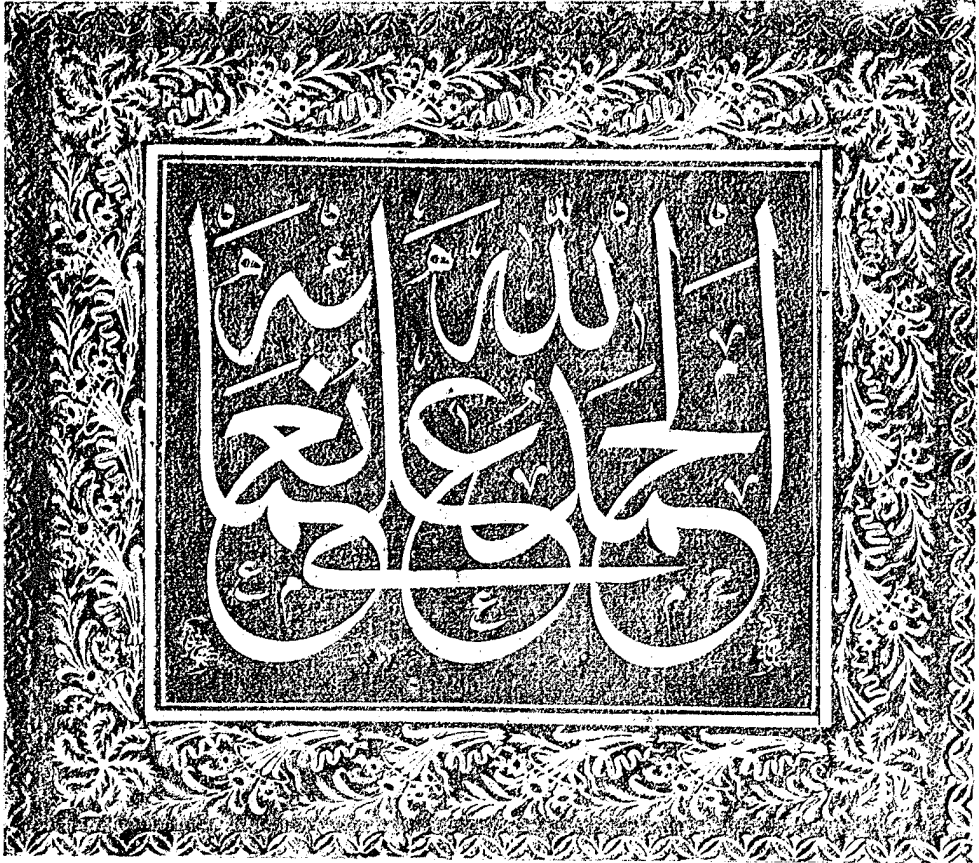 الحمد لله على نعمائه